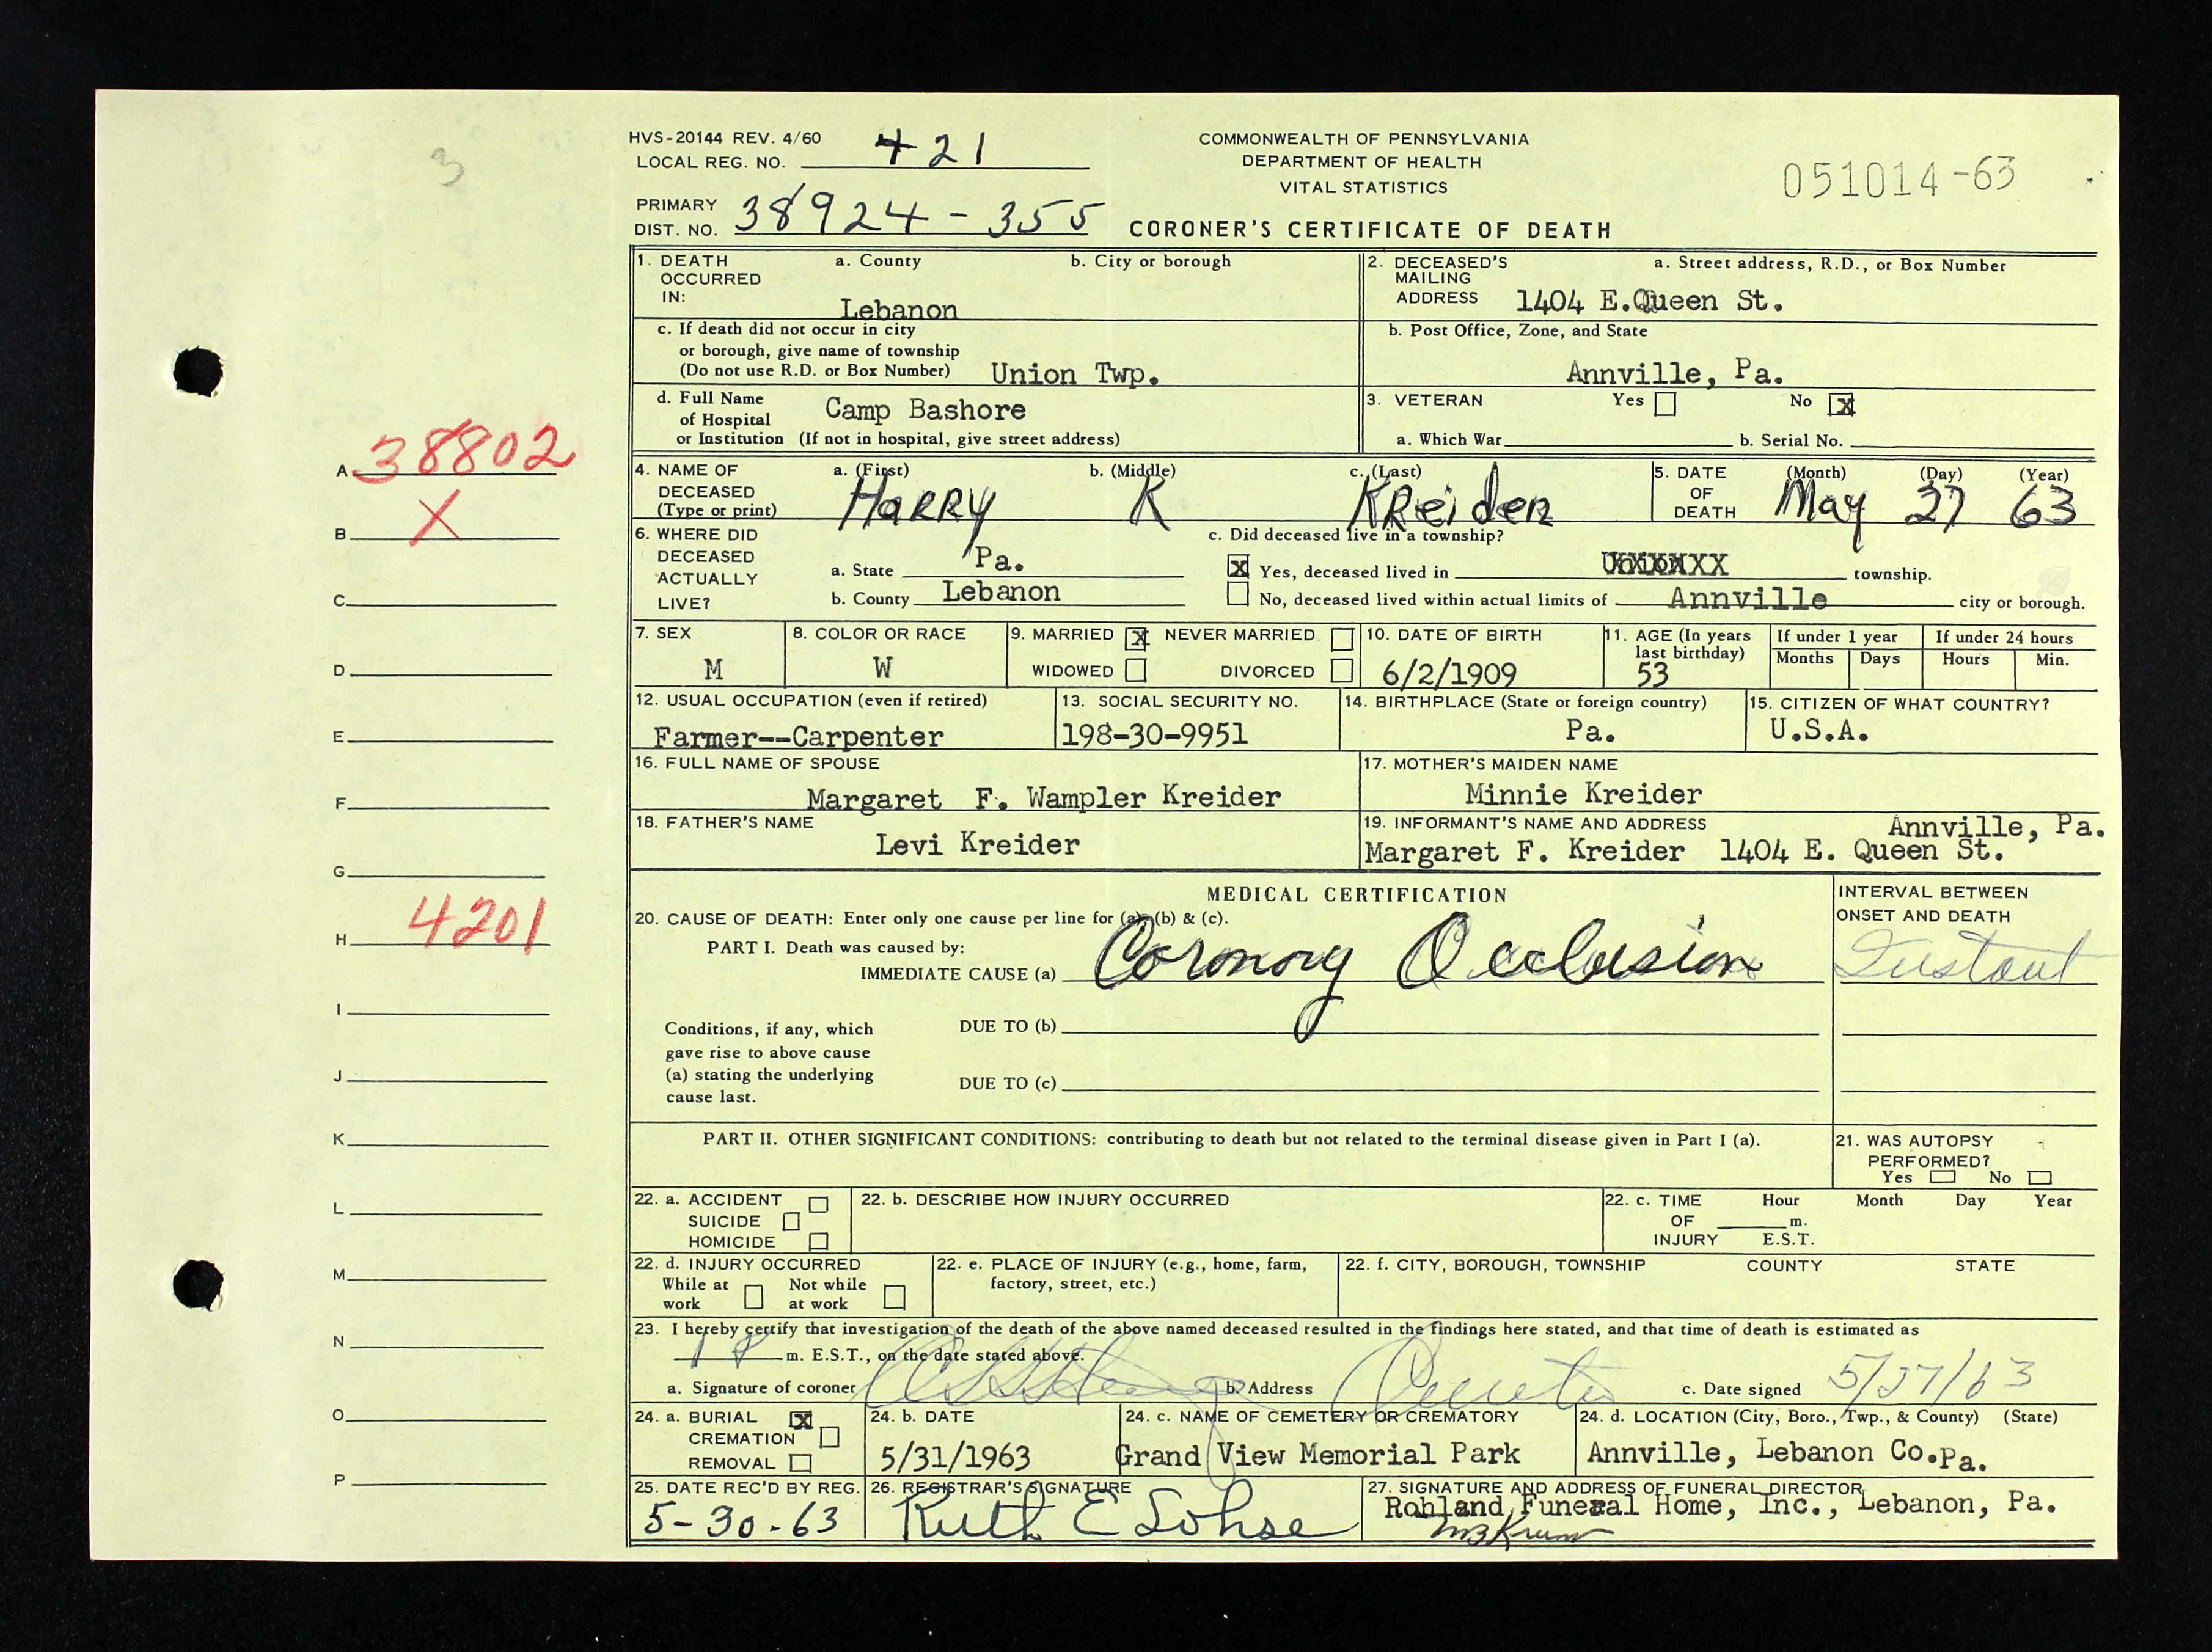 3
HVS-20144 REV. 4/60
LOCAL REG. NO. 421
COMMONWEALTH OF PENNSYLVANIA
DEPARTMENT OF HEALTH
VITAL STATISTICS
051014-63
PRIMARY
DIST. NO. 38924-355
CORONER'S CERTIFICATE OF DEATH
1. DEATH OCCURRED IN:
a. County
Lebanon
b. City or borough
c. If death did not occur in city
or borough, give name of township
(Do not use R.D. or Box Number) Union Twp.
d. Full Name
of Hospital
or Institution (If not in hospital, give street address)
Camp Bashore
2. DECEASED'S MAILING ADDRESS
a. Street address, R.D., or Box Number
1404 E.Queen St.
b. Post Office, Zone, and State
Annville, Pa.
3. VETERAN Yes No X
a. Which War b. Serial No.
4. NAME OF DECEASED (Type or print)
a. (First) b. (Middle) c. (Last)
Harry K Kreider
5. DATE OF DEATH
(Month) (Day) (Year)
May 27 63
6. WHERE DID DECEASED ACTUALLY LIVE?
a. State Pa.
b. County Lebanon
c. Did deceased live in a township?
X Yes, deceased lived in township.
No, deceased lived within actual limits of Annville city or borough.
7. SEX
M
8. COLOR OR RACE
W
9. MARRIED X NEVER MARRIED
WIDOWED DIVORCED
10. DATE OF BIRTH
6/2/1909
11. AGE (In years last birthday)
53
If under 1 year
Months Days
If under 24 hours
Hours Min.
12. USUAL OCCUPATION (even if retired)
Farmer--Carpenter
13. SOCIAL SECURITY NO.
198-30-9951
14. BIRTHPLACE (State or foreign country)
Pa.
15. CITIZEN OF WHAT COUNTRY?
U.S.A.
16. FULL NAME OF SPOUSE
Margaret F. Wampler Kreider
17. MOTHER'S MAIDEN NAME
Minnie Kreider
18. FATHER'S NAME
Levi Kreider
19. INFORMANT'S NAME AND ADDRESS
Annville, Pa.
Margaret F. Kreider 1404 E. Queen St.
MEDICAL CERTIFICATION
INTERVAL BETWEEN
ONSET AND DEATH
20. CAUSE OF DEATH: Enter only one cause per line for (a), (b) & (c).
PART I. Death was caused by:
IMMEDIATE CAUSE (a) Coronory Occlusion
Instant
Conditions, if any, which
gave rise to above cause
(a) stating the underlying
cause last.
DUE TO (b)
DUE TO (c)
PART II. OTHER SIGNIFICANT CONDITIONS: contributing to death but not related to the terminal disease given in Part I (a).
21. WAS AUTOPSY
PERFORMED?
Yes No
22. a. ACCIDENT
SUICIDE
HOMICIDE
22. b. DESCRIBE HOW INJURY OCCURRED
22. c. TIME OF INJURY
Hour Month Day Year
m.
E.S.T.
22. d. INJURY OCCURRED
While at work
Not while at work
22. e. PLACE OF INJURY (e.g., home, farm,
factory, street, etc.)
22. f. CITY, BOROUGH, TOWNSHIP COUNTY STATE
23. I hereby certify that investigation of the death of the above named deceased resulted in the findings here stated, and that time of death is estimated as
m. E.S.T., on the date stated above.
a. Signature of coroner
b. Address
c. Date signed 5/27/63
24. a. BURIAL X
CREMATION
REMOVAL
24. b. DATE
5/31/1963
24. c. NAME OF CEMETERY OR CREMATORY
Grand View Memorial Park
24. d. LOCATION (City, Boro., Twp., & County) (State)
Annville, Lebanon Co. Pa.
25. DATE REC'D BY REG.
5-30-63
26. REGISTRAR'S SIGNATURE
Ruth E Lohse
27. SIGNATURE AND ADDRESS OF FUNERAL DIRECTOR
Rohland Funeral Home, Inc., Lebanon, Pa.
A 38802
B X
C
D
E
F
G
H 4201
I
J
K
L
M
N
O
P